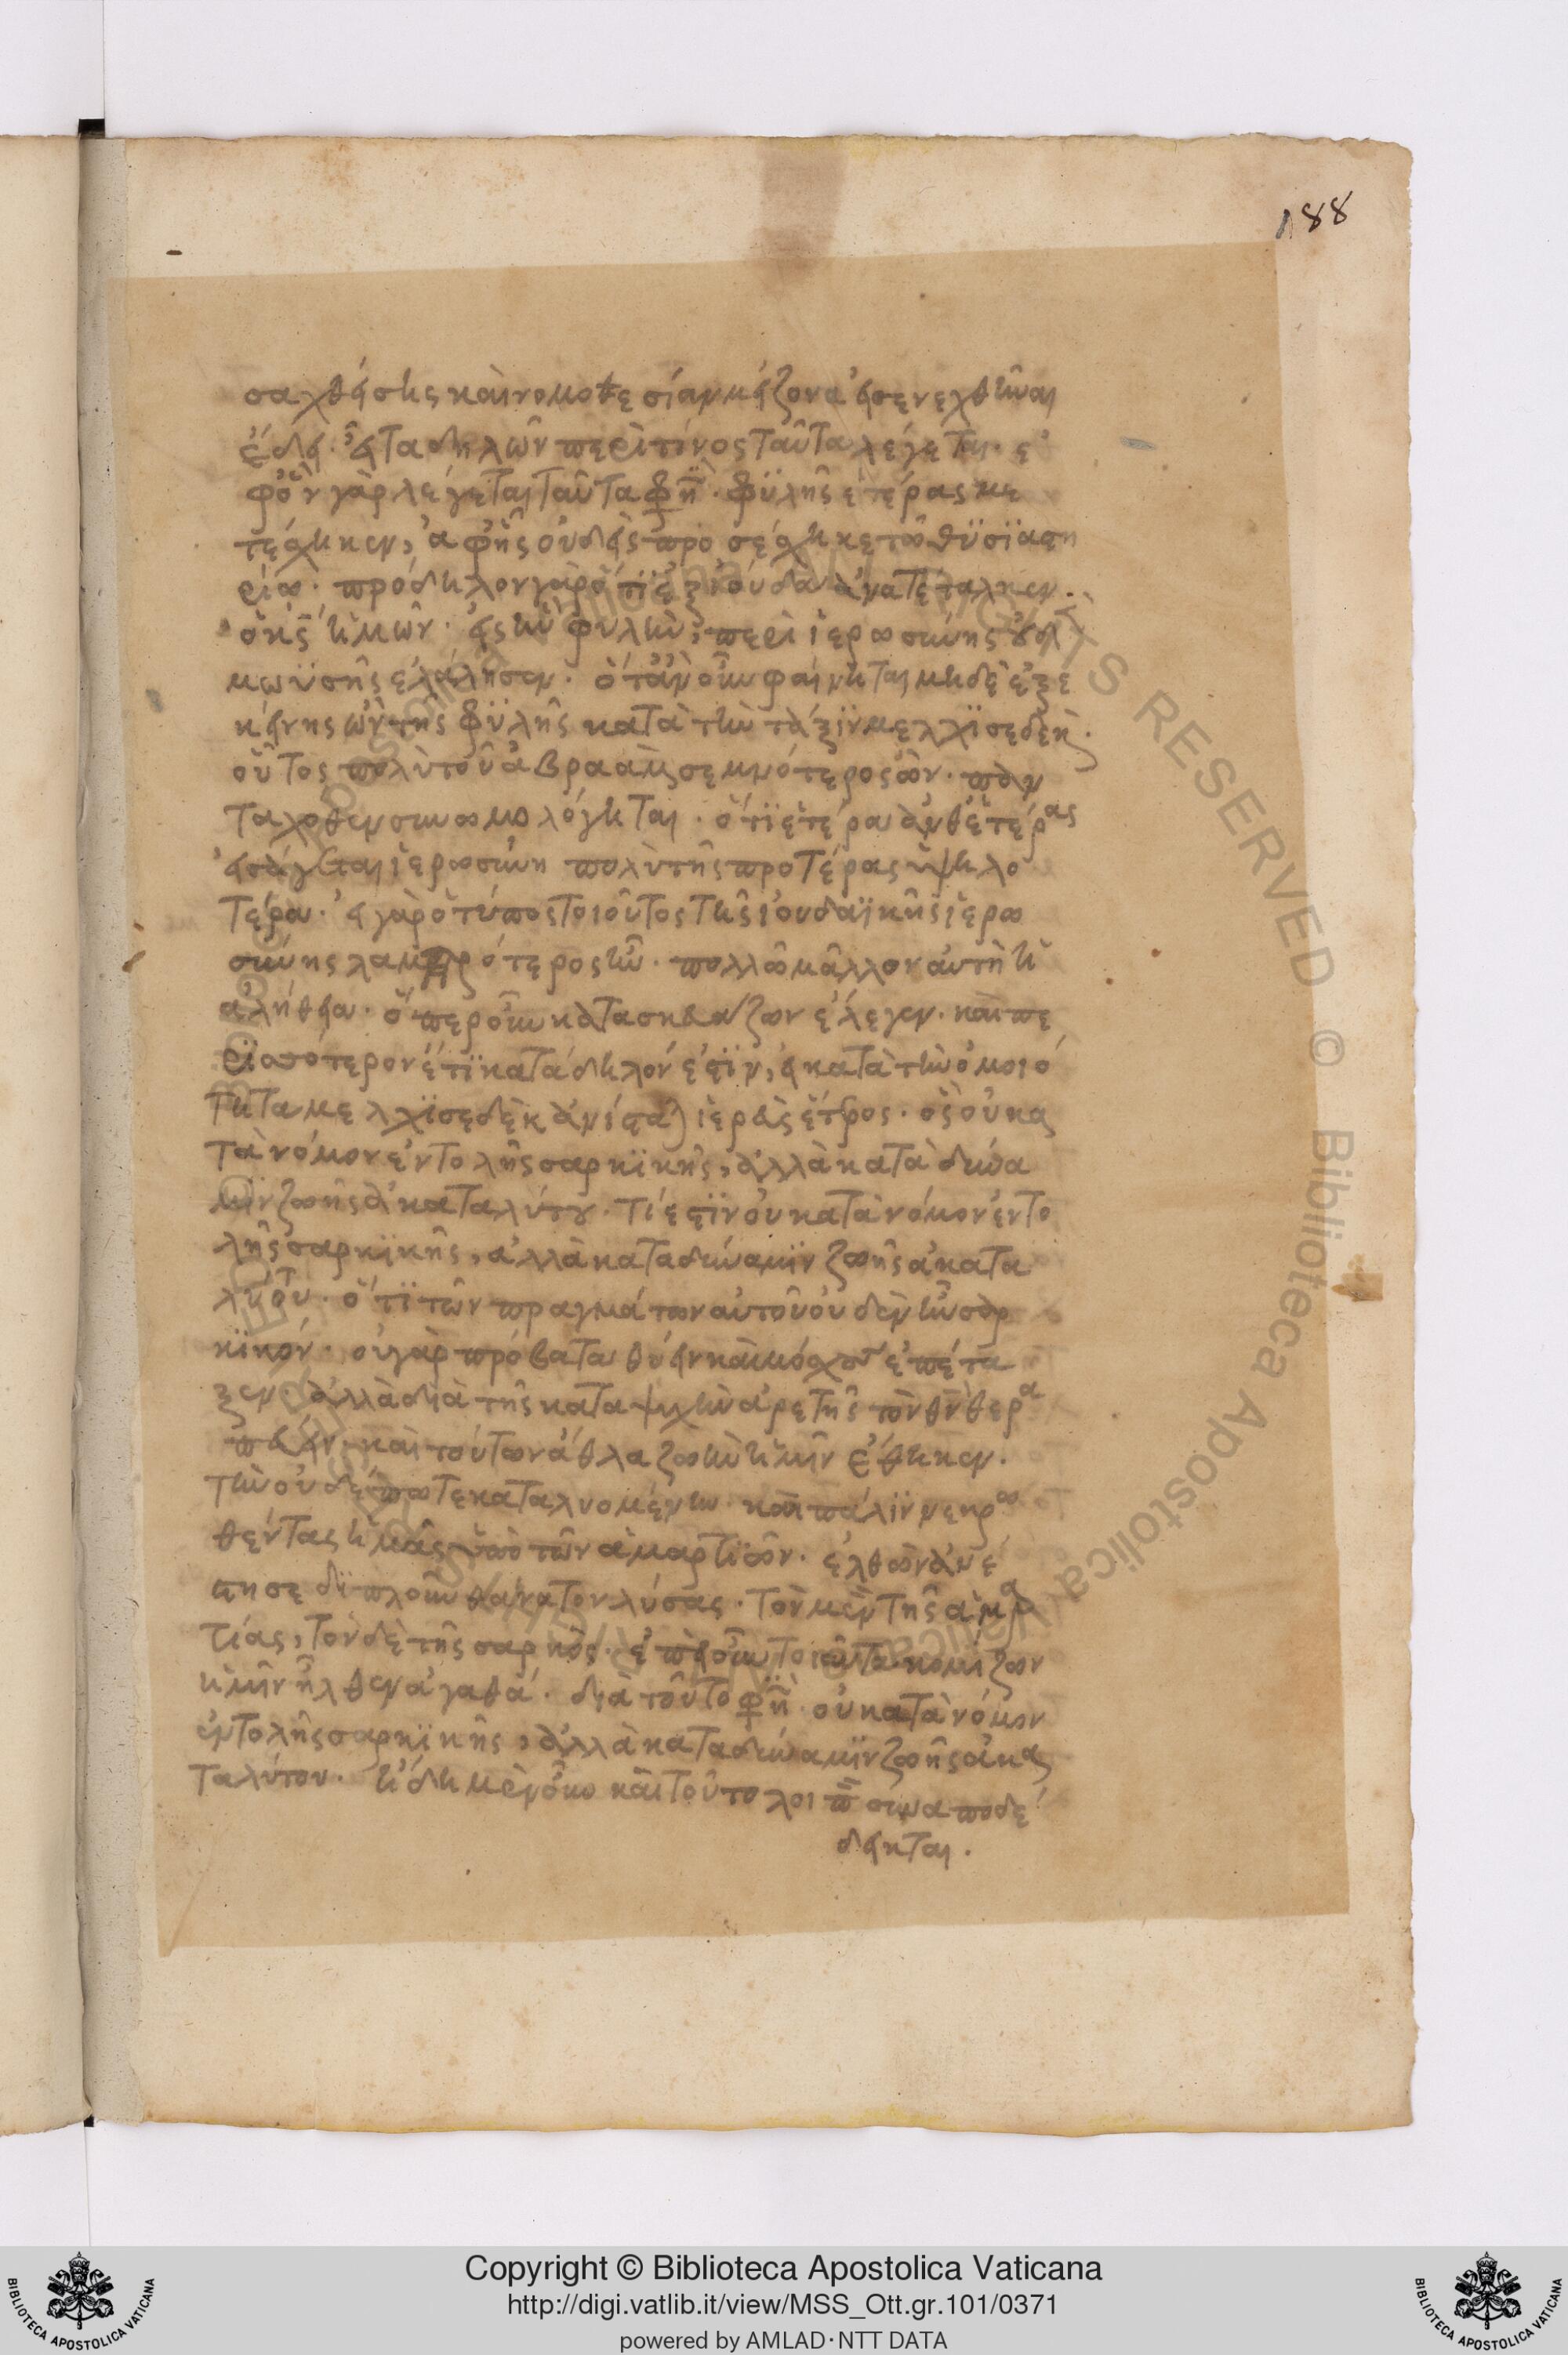 188
σαχθείσης καὶ νομοθεσίαν μείζονα εἰσενεχθῆναι
ἔδει. εἶτα δηλῶν περὶ τίνος ταῦτα λέγεται. ἐ
φ' ὃν γὰρ λέγεται ταῦτα φη̅. φυλῆς ἑτέρας με
τέσχηκεν, ἀφ' ἧς οὐδεὶς προσέσχηκε τῶ θυσιαστη
ρίω. πρόδηλον γὰρ ὅτι ἐξ ἰούδα ἀνατέταλκεν
ὁ κ̅ς ἡμῶν. εἰς ἣν φυλὴν, περὶ ἱερωσύνης οὐδὲ
μωϋσῆς ἐλάλησεν. ὅταν οὖν φαίνηται μηδὲ ἐξ ἐ
κείνης ὢν τῆς φυλῆς κατὰ τὴν τάξιν μελχισεδέκ.
οὗτος πολὺ τοῦ ἀβραὰμ σεμνότερος ὢν. παν
ταχόθεν συνωμολόγηται. ὅτι ἑτέρα ἀνθ' ἑτέρας
εἰσάγεται ἱερωσύνη πολὺ τῆς προτέρας ὑψηλο
τέρα. εἰ γὰρ ὁ τύπος τοιοῦτος τῆς ἰουδαϊκῆς ἱερω
σύνης λαμπρότερος ἦν. πολλῶ μᾶλλον αὐτὴ ἡ
ἀλήθεια. ὅπερ οὖν κατασκευάζων ἔλεγεν. καὶ πε
ρισσότερον ἔτι κατάδηλόν ἐστιν, εἰ κατὰ τὴν ὁμοιό
τητα μελχισεδὲκ ἀνίσταται ἱερεὺς ἕτερος. ὃς οὐ κα
τὰ νόμον ἐντολῆς σαρκικῆς, ἀλλὰ κατὰ δύνα
μιν ζωῆς ἀκαταλύτου. τί ἐστιν οὐ κατὰ νόμον ἐντο
λῆς σαρκικῆς, ἀλλὰ κατὰ δύναμιν ζωῆς ἀκατα
λύτου. ὅτι τῶν πραγμάτων αὐτοῦ οὐδὲν ἦν σαρ
κικόν. οὐ γὰρ πρόβατα θύειν καὶ μόσχους ἐπέτα
ξεν. ἀλλὰ διὰ τῆς κατὰ ψυχὴν ἀρετῆς τὸν θ̅ν̅ θερα
πεύειν. καὶ τούτων ἆθλα ζωὴν ἡμῖν ἔθηκεν.
τὴν οὐδέποτε καταλυομένην. καὶ πάλιν νεκρω
θέντας ἡμᾶς ὑπὸ τῶν ἁμαρτιῶν. ἐλθὼν ἀνέ
στησε διπλοῦν θάνατον λύσας. τὸν μὲν τῆς ἁμαρ
τίας, τὸν δὲ τῆς σαρκός. ἐπεὶ οὖν τοιαῦτα κομίζων
ἡμῖν ἦλθεν ἀγαθά. διὰ τοῦτο φη̅. οὐ κατὰ νόμον
ἐντολῆς σαρκικῆς, ἀλλὰ κατὰ δύναμιν ζωῆς ἀκα
ταλύτου. ἤδη μὲν οὖν καὶ τοῦτο λοιπ̅ συναποδέ
δεικται.
BIBLIOTECA APOSTOLICA VATICANA
Copyright © Biblioteca Apostolica Vaticana
http://digi.vatlib.it/view/MSS_Ott.gr.101/0371
powered by AMLAD·NTT DATA
BIBLIOTECA APOSTOLICA VATICANA